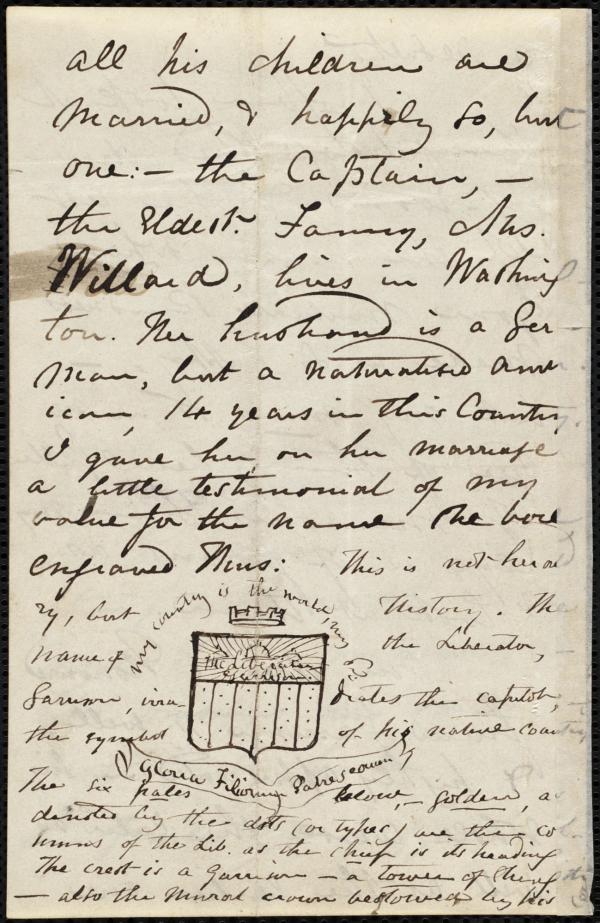 all his children are
Married, & happily so, but
one:— the Captain, —
the Eldest. Fanny, Mrs.
Willard, lives in Washing
ton. Her husband is a Ger-
man, but a naturalised Amer
ican, 14 years in this Country.
I gave her, on her marriage
a little testimonial of my
value for the name she bore
engraved Thus: This is not herald
ry, but History. The
my country is the world, my
name of the Liberator,
The Liberator
Garrison, irra- diates the capitol, —
the symbol of his native country
Gloria Filiorum Patres eorum
The six pales below, — golden, as
denoted by the dots (or types) are the co
lumns of the Lib. as the chief is its heading
The crest is a Garrison — a tower of strength
— also the Mural crown bestowed by his